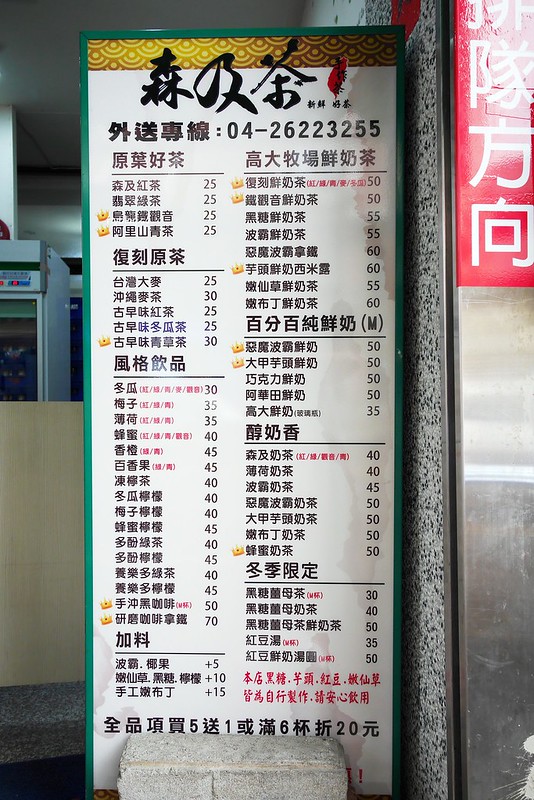 森及茶
手作茶
新鮮 好茶
外送專線:04-26223255
原葉好茶
森及紅茶 25
翡翠綠茶 25
烏龍鐵觀音 25
阿里山青茶 25
復刻原茶
台灣大麥 25
沖繩麥茶 30
古早味紅茶 25
古早味冬瓜茶 25
古早味青草茶 30
風格飲品
冬瓜(紅/綠/青/麥/觀音) 30
梅子(紅/綠/青) 35
薄荷(紅/綠/青) 35
蜂蜜(紅/綠/青/觀音) 40
香橙(綠/青) 45
百香果(綠/青) 45
凍檸茶 40
冬瓜檸檬 40
梅子檸檬 40
蜂蜜檸檬 45
多酚綠茶 40
多酚檸檬 45
養樂多綠茶 40
養樂多檸檬 45
手沖黑咖啡(M杯) 50
研磨咖啡拿鐵 70
加料
波霸.椰果 +5
嫩仙草.黑糖.檸檬 +10
手工嫩布丁 +15
高大牧場鮮奶茶
復刻鮮奶茶(紅/綠/青/麥/冬瓜) 50
鐵觀音鮮奶茶 50
黑糖鮮奶茶 55
波霸鮮奶茶 55
惡魔波霸拿鐵 60
芋頭鮮奶西米露 60
嫩仙草鮮奶茶 55
嫩布丁鮮奶茶 60
百分百純鮮奶(M)
惡魔波霸鮮奶 50
大甲芋頭鮮奶 50
巧克力鮮奶 50
阿華田鮮奶 50
高大鮮奶(玻璃瓶) 35
醇奶香
森及奶茶(紅/綠/觀音/青) 40
薄荷奶茶 40
波霸奶茶 45
惡魔波霸奶茶 50
大甲芋頭奶茶 50
嫩布丁奶茶 50
蜂蜜奶茶 50
冬季限定
黑糖薑母茶(M杯) 30
黑糖薑母奶茶 40
黑糖薑母茶鮮奶茶 50
紅豆湯(M杯) 35
紅豆鮮奶湯圓(M杯) 50
本店黑糖.芋頭.紅豆.嫩仙草
皆為自行製作.請安心飲用
全品項買5送1或滿6杯折20元
！
排隊方向